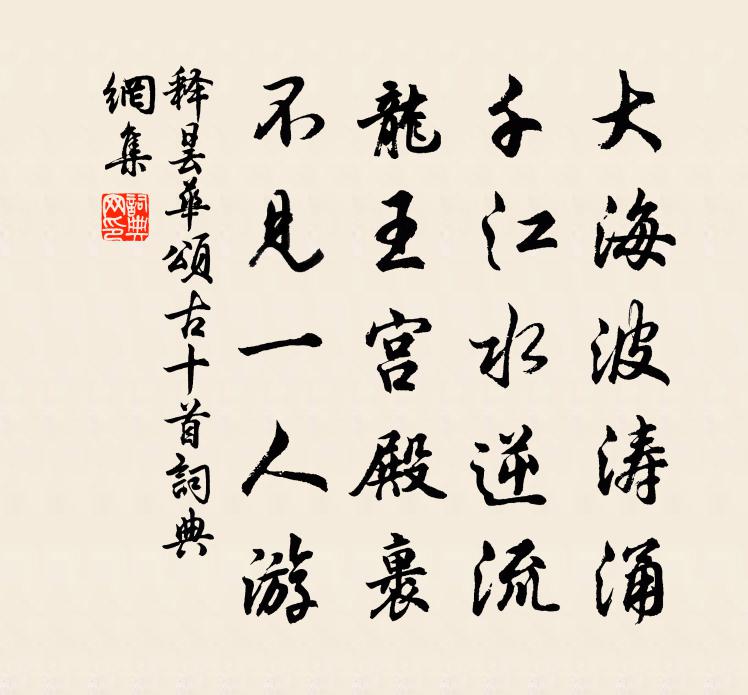 大海波涛涌
千江水逆流
龍王宫殿裏
不見一人游
释曇華頌古十首詞典
網集
詞典
网印